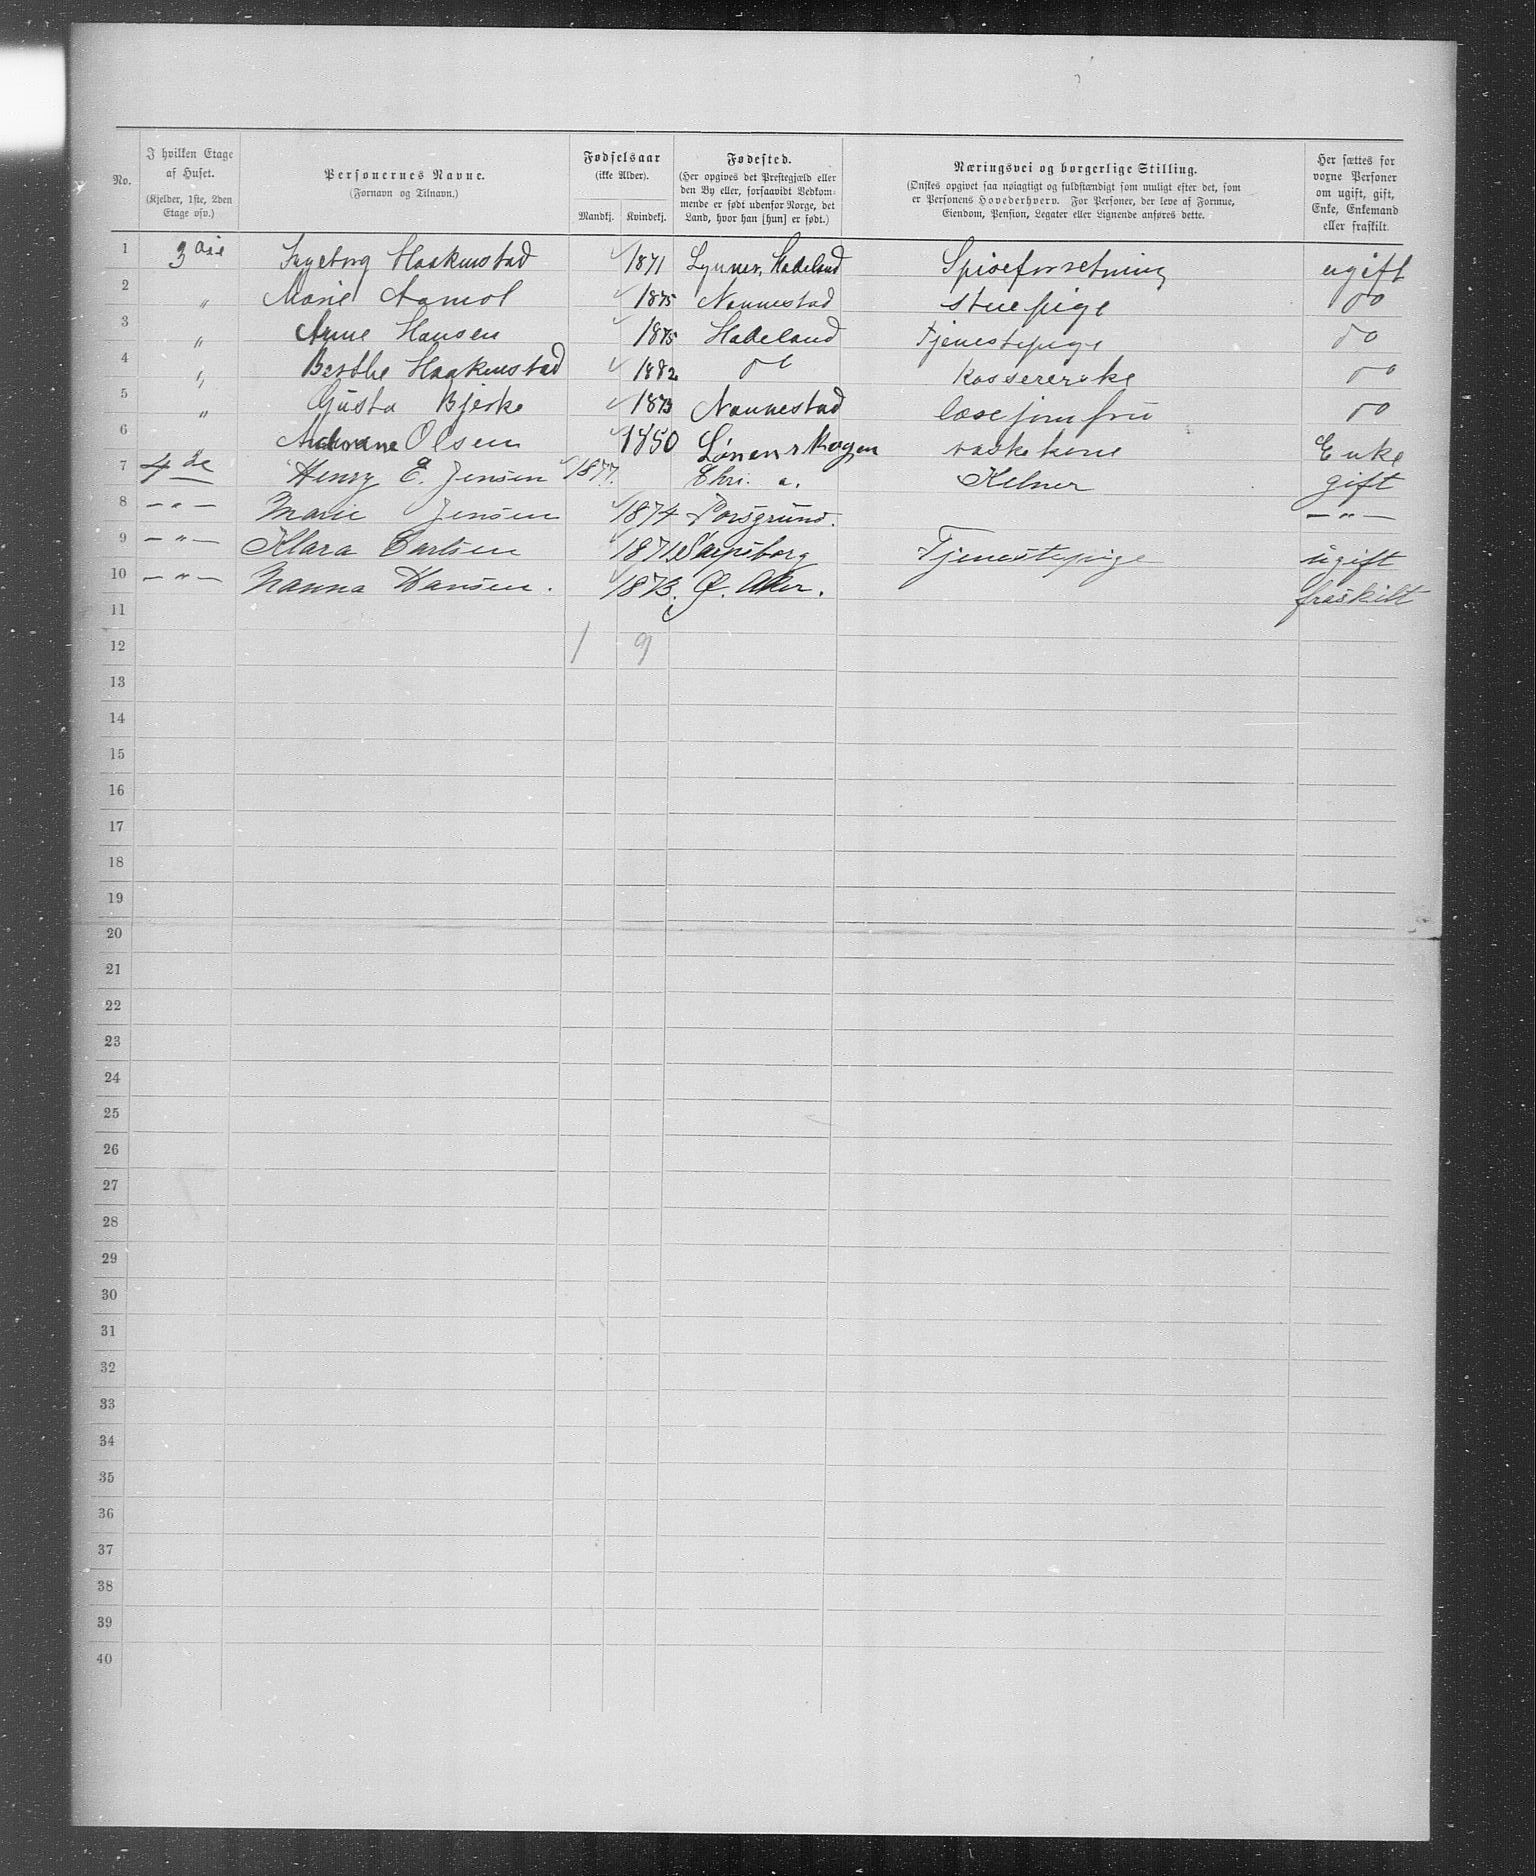 No. | I hvilken Etage af Huset. (Kjelder, 1ste, 2den Etage osv.) | Personernes Navne. (Fornavn og Tilnavn.) | Fødselsaar (ikke Alder). Mandkj. | Kvindekj. | Fødested. (Her opgives det Prestegjæld eller den By eller, forsaavidt Vedkommende er født udenfor Norge, det Land, hvor han [hun] er født.) | Næringsvei og borgerlige Stilling. (Ønskes opgivet saa nøiagtigt og fuldstændigt som muligt efter det, som er Personens Hovederhverv. For Personer, der leve af Formue, Eiendom, Pension, Legater eller Lignende anføres dette. | Her sættes for voxne Personer om ugift, gift, Enke, Enkemand eller fraskilt.
1 | 3die | Ingeborg Haakenstad | 1871 | Lynner, Hadeland | Spiseforretning | ugift
2 | " | Marie Aamot | 1875 | Nannestad | stuepige | do
3 | " | Anne Hansen | 1875 | Hadeland | Tjenestepige | do
4 | " | Berthe Haakenstad | 1882 | do | Kassererske | do
5 | " | Gusta Bjerke | 1873 | Nannestad | løsejomfru | do
6 | Olsen | 1850 | vaskekone | Enke
7 | 4de | Henry E. Jensen | 1877. | Chri. a. | Kelner | gift
8 | — " — | Marie Jensen | 1874 | Porsgrund. | — " —
9 | — " — | Klara Carlsen | 1871 | Sarpsborg | Tjenestepige | ugift
10 | — " — | Nanna Hansen. | 1873. | Ø. Aker. | fraskilt
11
12 | 1 | 9
13
14
15
16
17
18
19
20
21
22
23
24
25
26
27
28
29
30
31
32
33
34
35
36
37
38
39
40